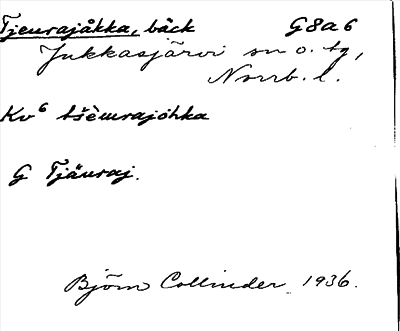 Tjeurajåkka, bäck G8a6
Jukkasjärvi sn o. tg,
Norrb. l.
Kv⁶ tšèurajohka
G Tjäuraj.
Björn Collinder 1936.